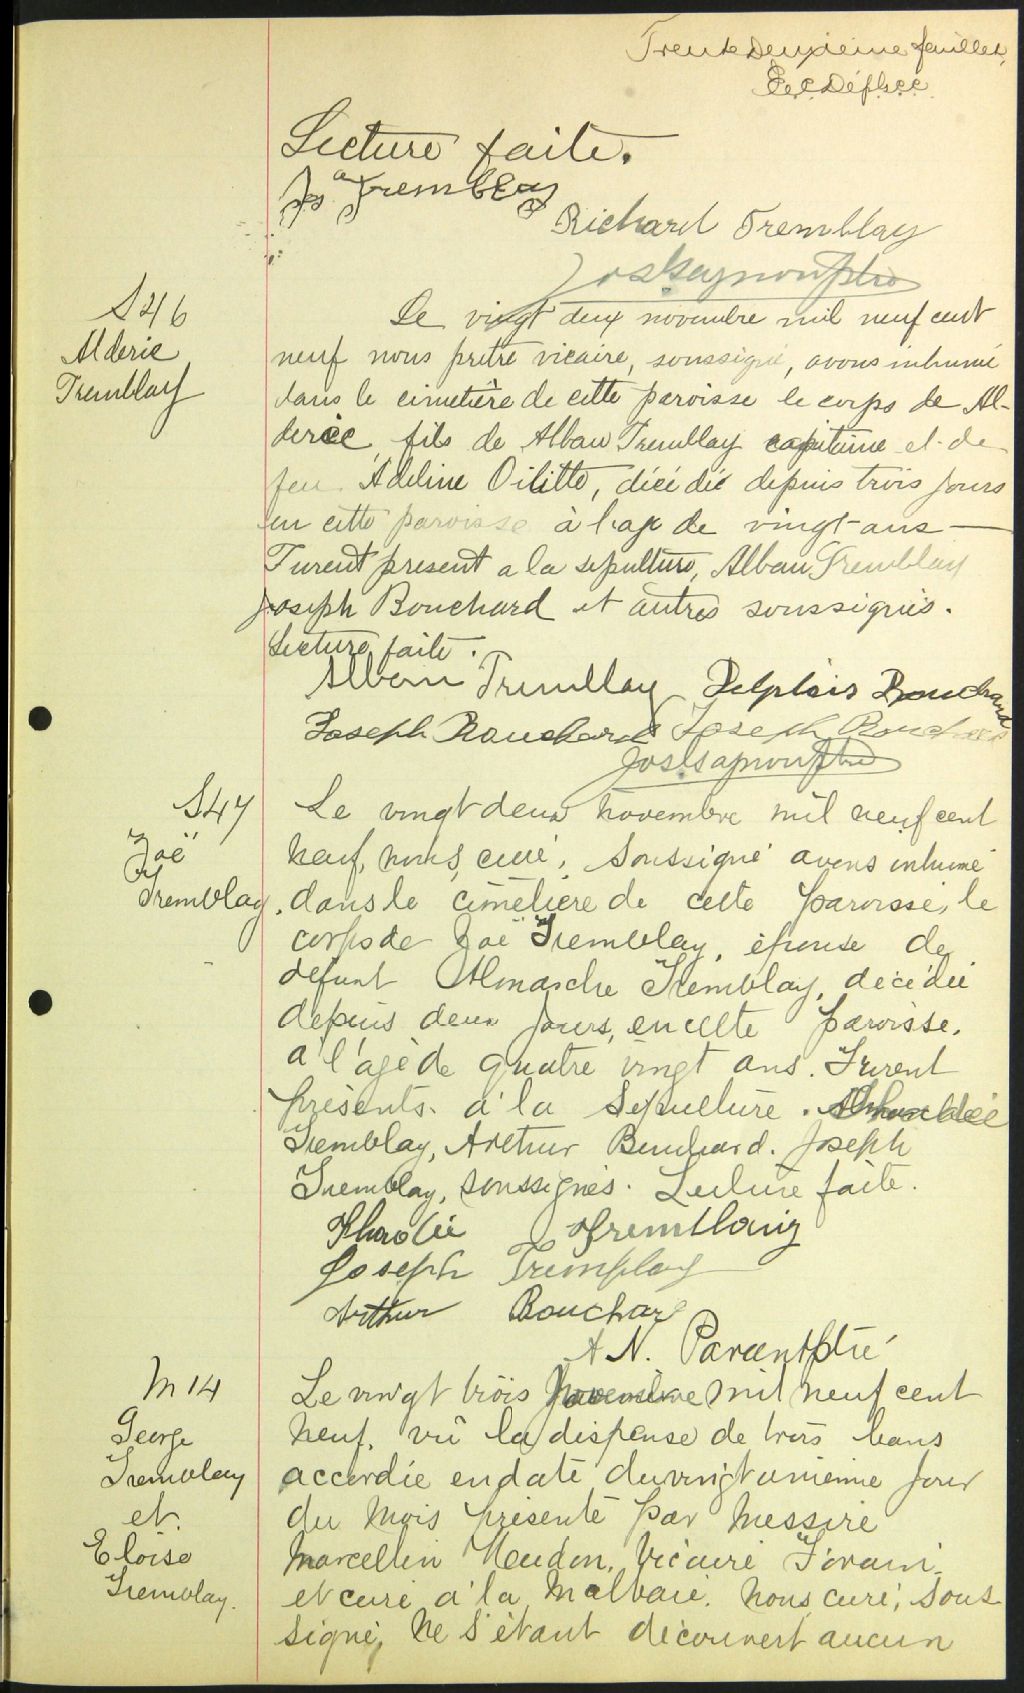 Trente Deuxième feuillet,
Lecture faite.
Jos Tremblay
Richard Tremblay
Jos Gagnon Ptre
S46
Alderic
Tremblay
Le vingt deux novembre mil neuf cent
neuf nous prêtre vicaire, soussigné, avons inhumé
dans le cimetière de cette paroisse le corps de Al-
deric fils de Alban Tremblay capitaine et de
feu Adeline décédé depuis trois jours
en cette paroisse à l'age de vingt-ans —
Furent present a la sepulture, Alban Tremblay
Joseph Bouchard et autres soussignés.
Lecture faite.
Alban Tremblay Delphis Bouchard
Joseph Bouchard Joseph Bouchard
Jos Gagnon Ptre
S47
Zoë
Tremblay.
Le vingt deux novembre mil neuf cent
neuf, nous, curé, soussigné avons inhumé
dans le cimetière de cette paroisse, le
corps de Zoë Tremblay, épouse de
défunt Tremblay, décédée
depuis deux jours, en cette paroisse,
à l'age de quatre vingt ans. Furent
présents à la sépulture.
Tremblay, Arthur Bouchard. Joseph
Tremblay, soussignés. Lecture faite.
Tremblay
Joseph Tremplay
Arthur Bouchard
A N. Parant Ptre
M14
George
Tremblay
et
Eloise
Tremblay.
Le vingt trois novembre mil neuf cent
neuf, vû la dispense de trois bans
accordée en date du vingt unième jour
du mois présente par Messire
Marcellin Hudon, Vicaire Forain,
et curé à la Malbaie. Nous curé, sous
signé, ne s'étant découvert aucun